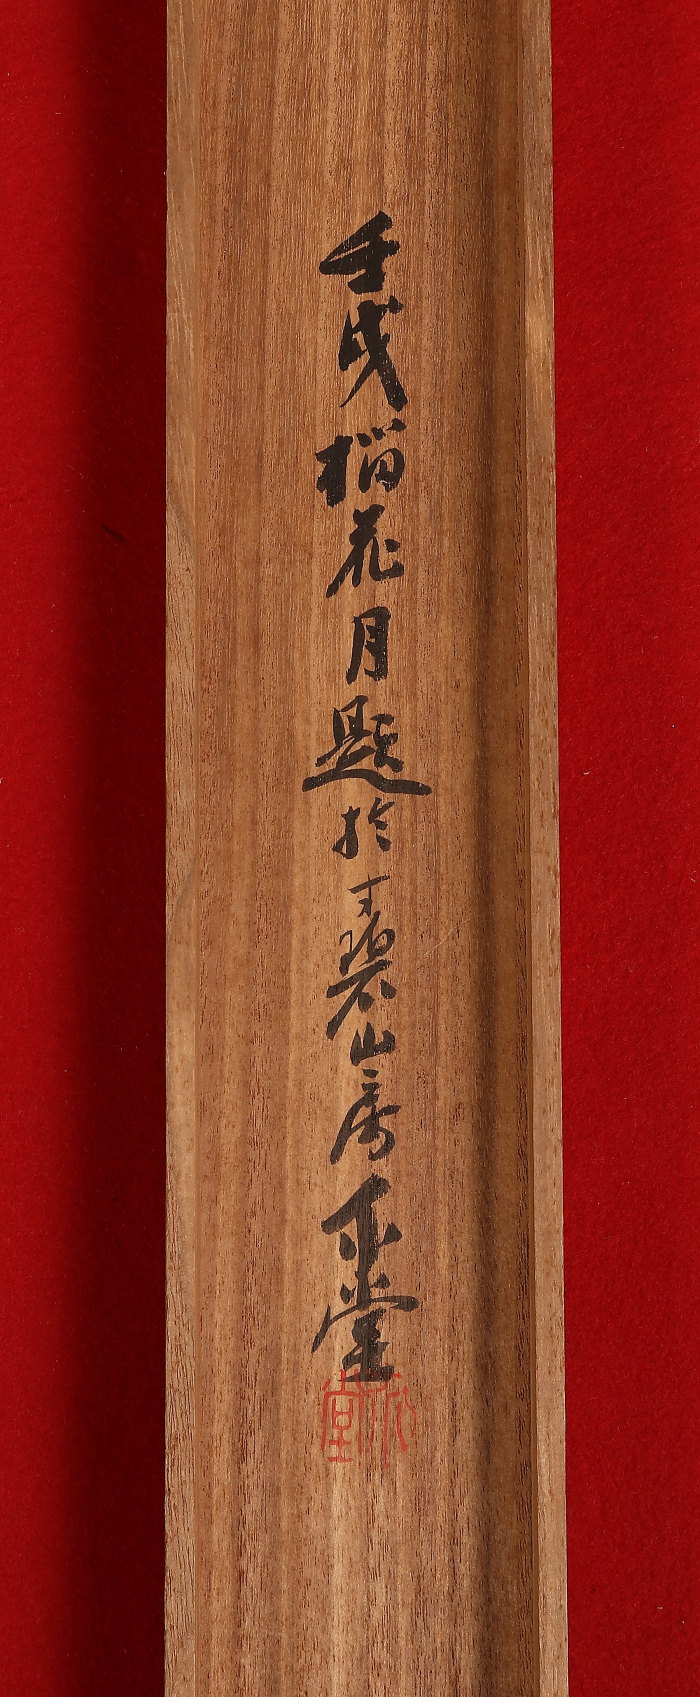 壬戌榴花月題於寸碧山房堂
堂